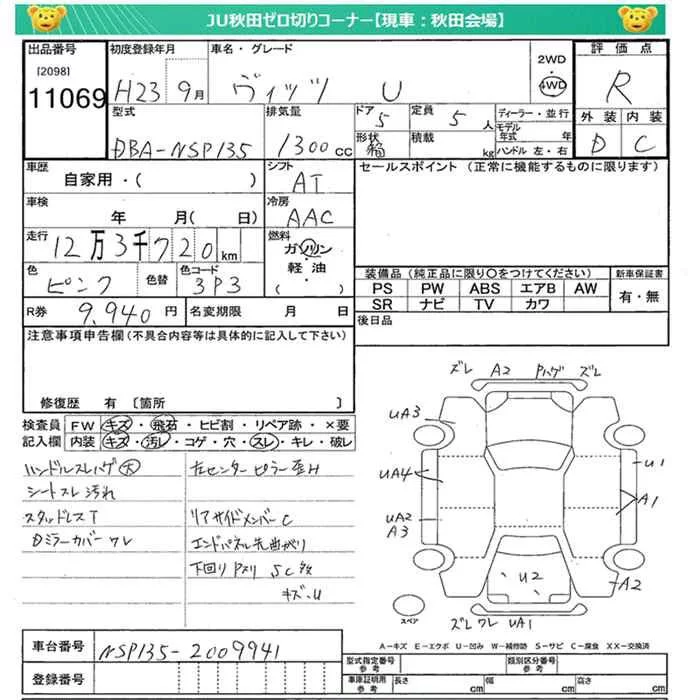 JU秋田ゼロ切りコーナー【現車：秋田会場】
出品番号
[2098]
11069
初度登録年月
H23 9月
車名・グレード
ヴィッツ U
2WD
4WD
評価点
R
型式
DBA-NSP135
排気量
1300cc
ドア
5
定員
5人
形状
箱
積載
kg
ディーラー・並行
モデル年式 年
ハンドル 左・右
外装 内装
D C
車歴
自家用・( )
シフト
AT
セールスポイント (正常に機能するものに限ります)
車検
年 月( 日)
冷房
AAC
走行
12万3千720km
燃料
ガソリン
・
軽油
( )
色
ピンク
色替
色コード
3P3
装備品 (純正品に限り○をつけてください)
新車保証書
PS PW ABS エアB AW
SR ナビ TV カワ
有・無
R券 9,940円
名変期限 月 日
後日品
注意事項申告欄(不具合内容等は具体的に記入して下さい)
修復歴 有 〔箇所 〕
検査員
記入欄
FW キズ・飛石・ヒビ割・リペア跡・×要
内装 キズ・汚レ・コゲ・穴・スレ・キレ・破レ
ハンドルスレハゲ大
シートスレ汚れ
スタッドレスT
Dミラーカバーワレ
左センターピラー歪み
リアサイドメンバーC
エンドパネル先曲がり
下回りPヌリ SC有
キズ・U
ズレ A2 Pハゲ ズレ
UA3
UA4
UA2
A3
U1
A1
U2
A2
スペア
ズレワレ UA1
A－キズ E－エクボ U－凹み W－補修跡 S－サビ C－腐食 XX－交換済
車台番号
NSP135-2009941
登録番号
型式指定番号
参考
類別区分番号
参考
車庫証明用
参考
長さ cm
幅 cm
高さ cm